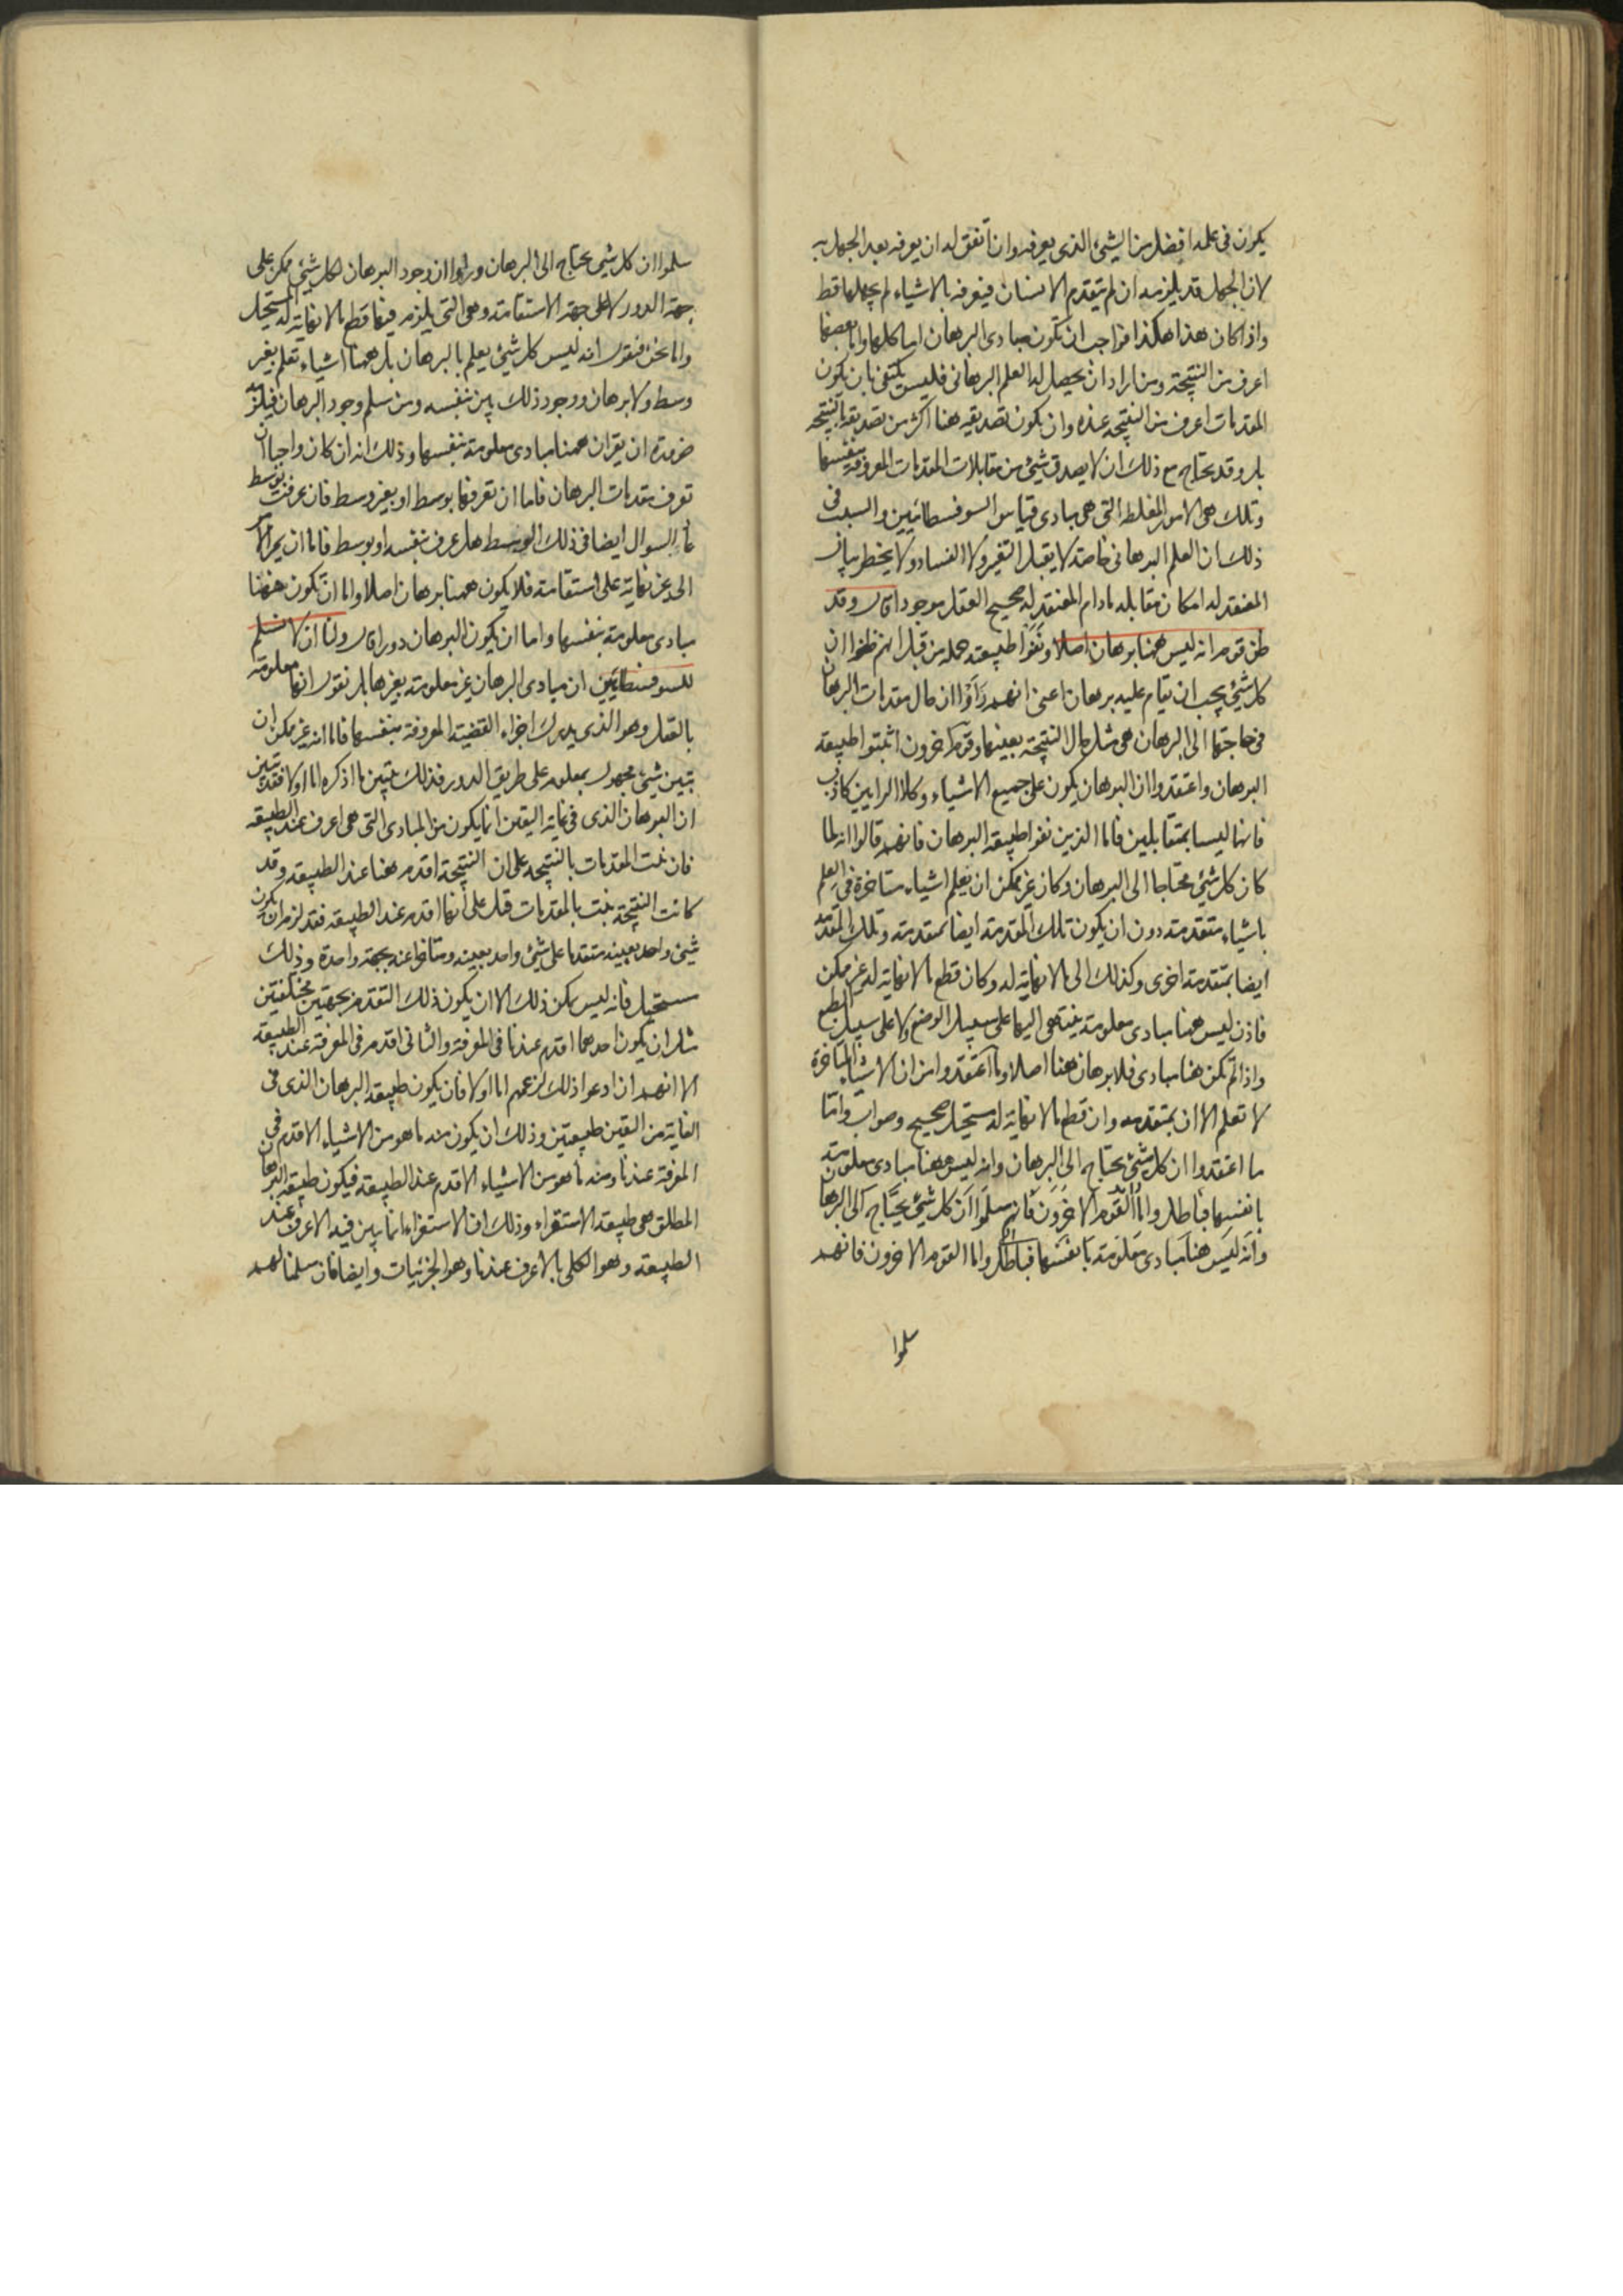 يكون فى علمه افضل من الشئ الذى يعرفه وان اتفق له ان يعرفه بعد الجهل به
لان الجهل قد يلزمه ان لم يتقدم الانسان فيعرفه بالاشياء لم يجهلها قط
واذا كان هذا هكذا فواجب ان تكون مبادى البرهان اما كلها واما بعضها
اعرف من النتيجة ومن اراد ان يحصل له العلم البرهانى فليس يكتفى بان يكون
المقدمات اعرف من النتيجه عنده وان يكون تصديقه هنا اكثر من تصديقه بالنتيجه
بل وقد يحتاج مع ذلك ان لا يصدق شئ من مقابلات المقدمات المعروفة بنفسها
وتلك هى الامور المغلطه التى هى مبادى قياس السوفسطائيين والسبب فى
ذلك ان العلم البرهانى خاصته لا يقبل التغير ولا الفساد ولا يخطر ببال
المعتقد له امكان مقابله مادام المعتقد له صحيح العقل موجودا قال وقد
ظن قوم انه ليس ههنا برهان اصلا ونفوا طبيعته جمله من قبل انهم ظنوا ان
كل شئ يجب ان يقام عليه برهان اعنى انهم رَأَوْا ان حال مقدمات البرهان
فى حاجتها الى البرهان هى مثل حال النتيجة بعينها وقوم اخرون اثبتوا طبيعة
البرهان واعتقدوا ان البرهان يكون على جميع الاشياء وكلا الرايين كاذب
فانهما ليسا بمتقابلين فاما الذين نفوا طبيعة البرهان فانهم قالوا انه لما
كان كل شئ محتاجا الى البرهان وكان غير ممكن ان يعلم اشياء متاخرة فى العلم
باشياء متقدمة دون ان يكون تلك المقدمة ايضا بمتقدمة وتلك المقدمة
ايضا بمتقدمة اخرى وكذلك الى ما لا نهاية له وكان قطع ما لا نهاية له غير ممكن
فاذن ليس ههنا مبادى معلومة ينتهى اليها على سبيل الوضع ولا على سبيل الطبع
واذا لم تكن هنا مبادى فلا برهان هنا اصلا وما اعتقدوا من ان الاشياء المتاخرة
لا تعلم الا ان بمتقدمه وان قطع ما لا نهاية له مستحيل صحيح وصواب واما
ما اعتقدوا ان كل شئ يحتاج الى البرهان وانه ليس ههنا مبادى معلومة
بانفسها فباطل واما القوم الاخرون فانهم سلموا ان كل شئ يحتاج الى البرهان
وانه ليس هنا مبادى معلومة بانفسها فباطل واما القوم الاخرون فانهم
سلموا
سلموا ان كل شئ يحتاج الى البرهان وراوا ان وجود البرهان لكل شئ ممكن على
جهة الدور لا على جهة الاستقامة وهى التى يلزم فيها قطع ما لا نهاية له المستحيل
واما نحن فنقول انه ليس كل شئ يعلم بالبرهان بل ههنا اشياء تعلم بغير
وسط ولا برهان ووجود ذلك بين بنفسه ومن سلم وجود البرهان فيلزمه
ضرورة ان يقر ان ههنا مبادى معلومة بنفسها وذلك انه ان كان واجبا ان
تعرف مقدمات البرهان فاما ان تعرفها بوسط او بغير وسط فان عرفت بوسط
عاد السوال ايضا فى ذلك الوسط هل عرف بنفسه او بوسط فاما ان يمر الامر
الى غير نهاية على استقامة فلا يكون ههنا برهان اصلا واما ان تكون ههنا
مبادى معلومة بنفسها واما ان يكون البرهان دورا قال ولنا ان لا نسلم
للسوفسطائيين ان مبادى البرهان غير معلومة بغيرها بل نقول انها معلومة
بالعقل وهو الذى يدرك اجزاء القضية المعروفة بنفسها فاما انه غير ممكن ان
يتبين شئ مجهول بمعلومه على طريق الدور فذلك يتبين مما اذكره اما اولا فقد تبين
ان البرهان الذى فى غاية اليقين انما يكون من المبادى التى هى اعرف عند الطبيعه
فان بينت المقدمات بالنتيجه على ان النتيجة اقدم ههنا عند الطبيعه وقد
كانت النتيجة بينت بالمقدمات قبل على انها اقدم عند الطبيعه فقد لزم ان يكون
شئ واحد بعينه متقدما على شئ واحد بعينه ومتاخرا عنه بجهة واحدة وذلك
مستحيل فانه ليس يمكن ذلك الا ان يكون ذلك التقدم بجهتين مختلفتين
مثل ان يكون احدهما اقدم عندنا فى المعرفة والثانى اقدم فى المعرفة عند الطبيعه
الا انهم ان ادعوا ذلك لزمهم اما اولا فان يكون طبيعة البرهان الذى فى
الغاية من اليقين طبيعتين وذلك ان يكون منه ما هو من الاشياء الاقدم فى
المعرفة عندنا ومنه ما هو من الاشياء الاقدم عند الطبيعه فيكون طبيعة البرهان
المطلق هى طبيعة الاستقراء وذلك ان الاستقراء انما يبين فيه الاعرف عند
الطبيعه وهو الكلى بالاعرف عندنا وهو الجزئيات وايضا فان سلمنا لهم